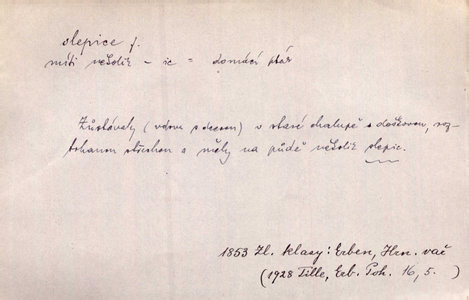 slepice f.
míti několik – ic = domácí pták
Zůstávaly (vdova s dcerou) v staré chalupě s doškovou, roz-
trhanou střechou a měly na půdě několik slepic.
1853 Zl. klasy: Erben, Hrn. vař
(1928 Tille, Erb. Poh. 16, 5.)